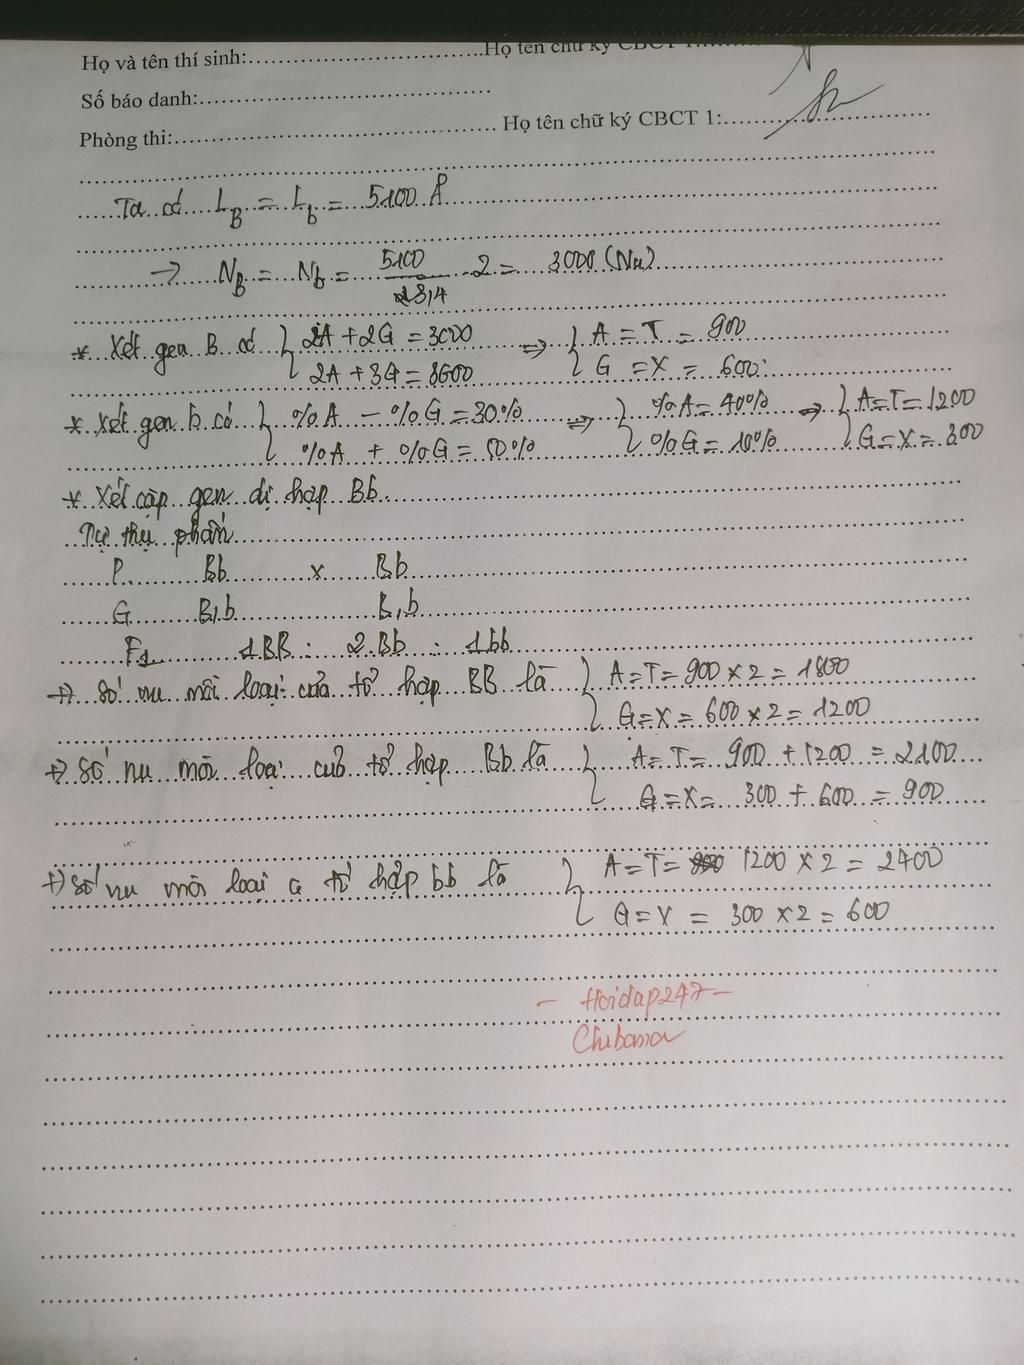 Họ và tên thí sinh:..............................Họ tên chữ ký CBCT
Số báo danh:..............................
Phòng thi:.............................. Họ tên chữ ký CBCT 1:..............................
Ta có L_B = L_b = 5100 Å
→ N_B = N_b = 5100/3,4 . 2 = 3000 (Nu)
* Xét gen B có { 2A + 2G = 3000 => { A = T = 900
2A + 3G = 3600 G = X = 600
* Xét gen b có { %A - %G = 30% => { %A = 40% => { A=T=1200
%A + %G = 50% %G = 10% G=X=300
* Xét cặp gen dị hợp Bb
Tự thụ phấn
P. Bb x Bb
G B,b B,b
F1 1BB : 2Bb : 1bb
+) Số nu mỗi loại của tổ hợp BB là { A=T=900 x 2 = 1800
G=X=600 x 2 = 1200
+) Số nu mỗi loại củả tổ hợp Bb là { A=T= 900 + 1200 = 2100
G=X= 300 + 600 = 900
+) Số nu mỗi loại ủ tổ hợp bb là { A=T= 1200 x 2 = 2400
G=X = 300 x 2 = 600
- Hoidap247-